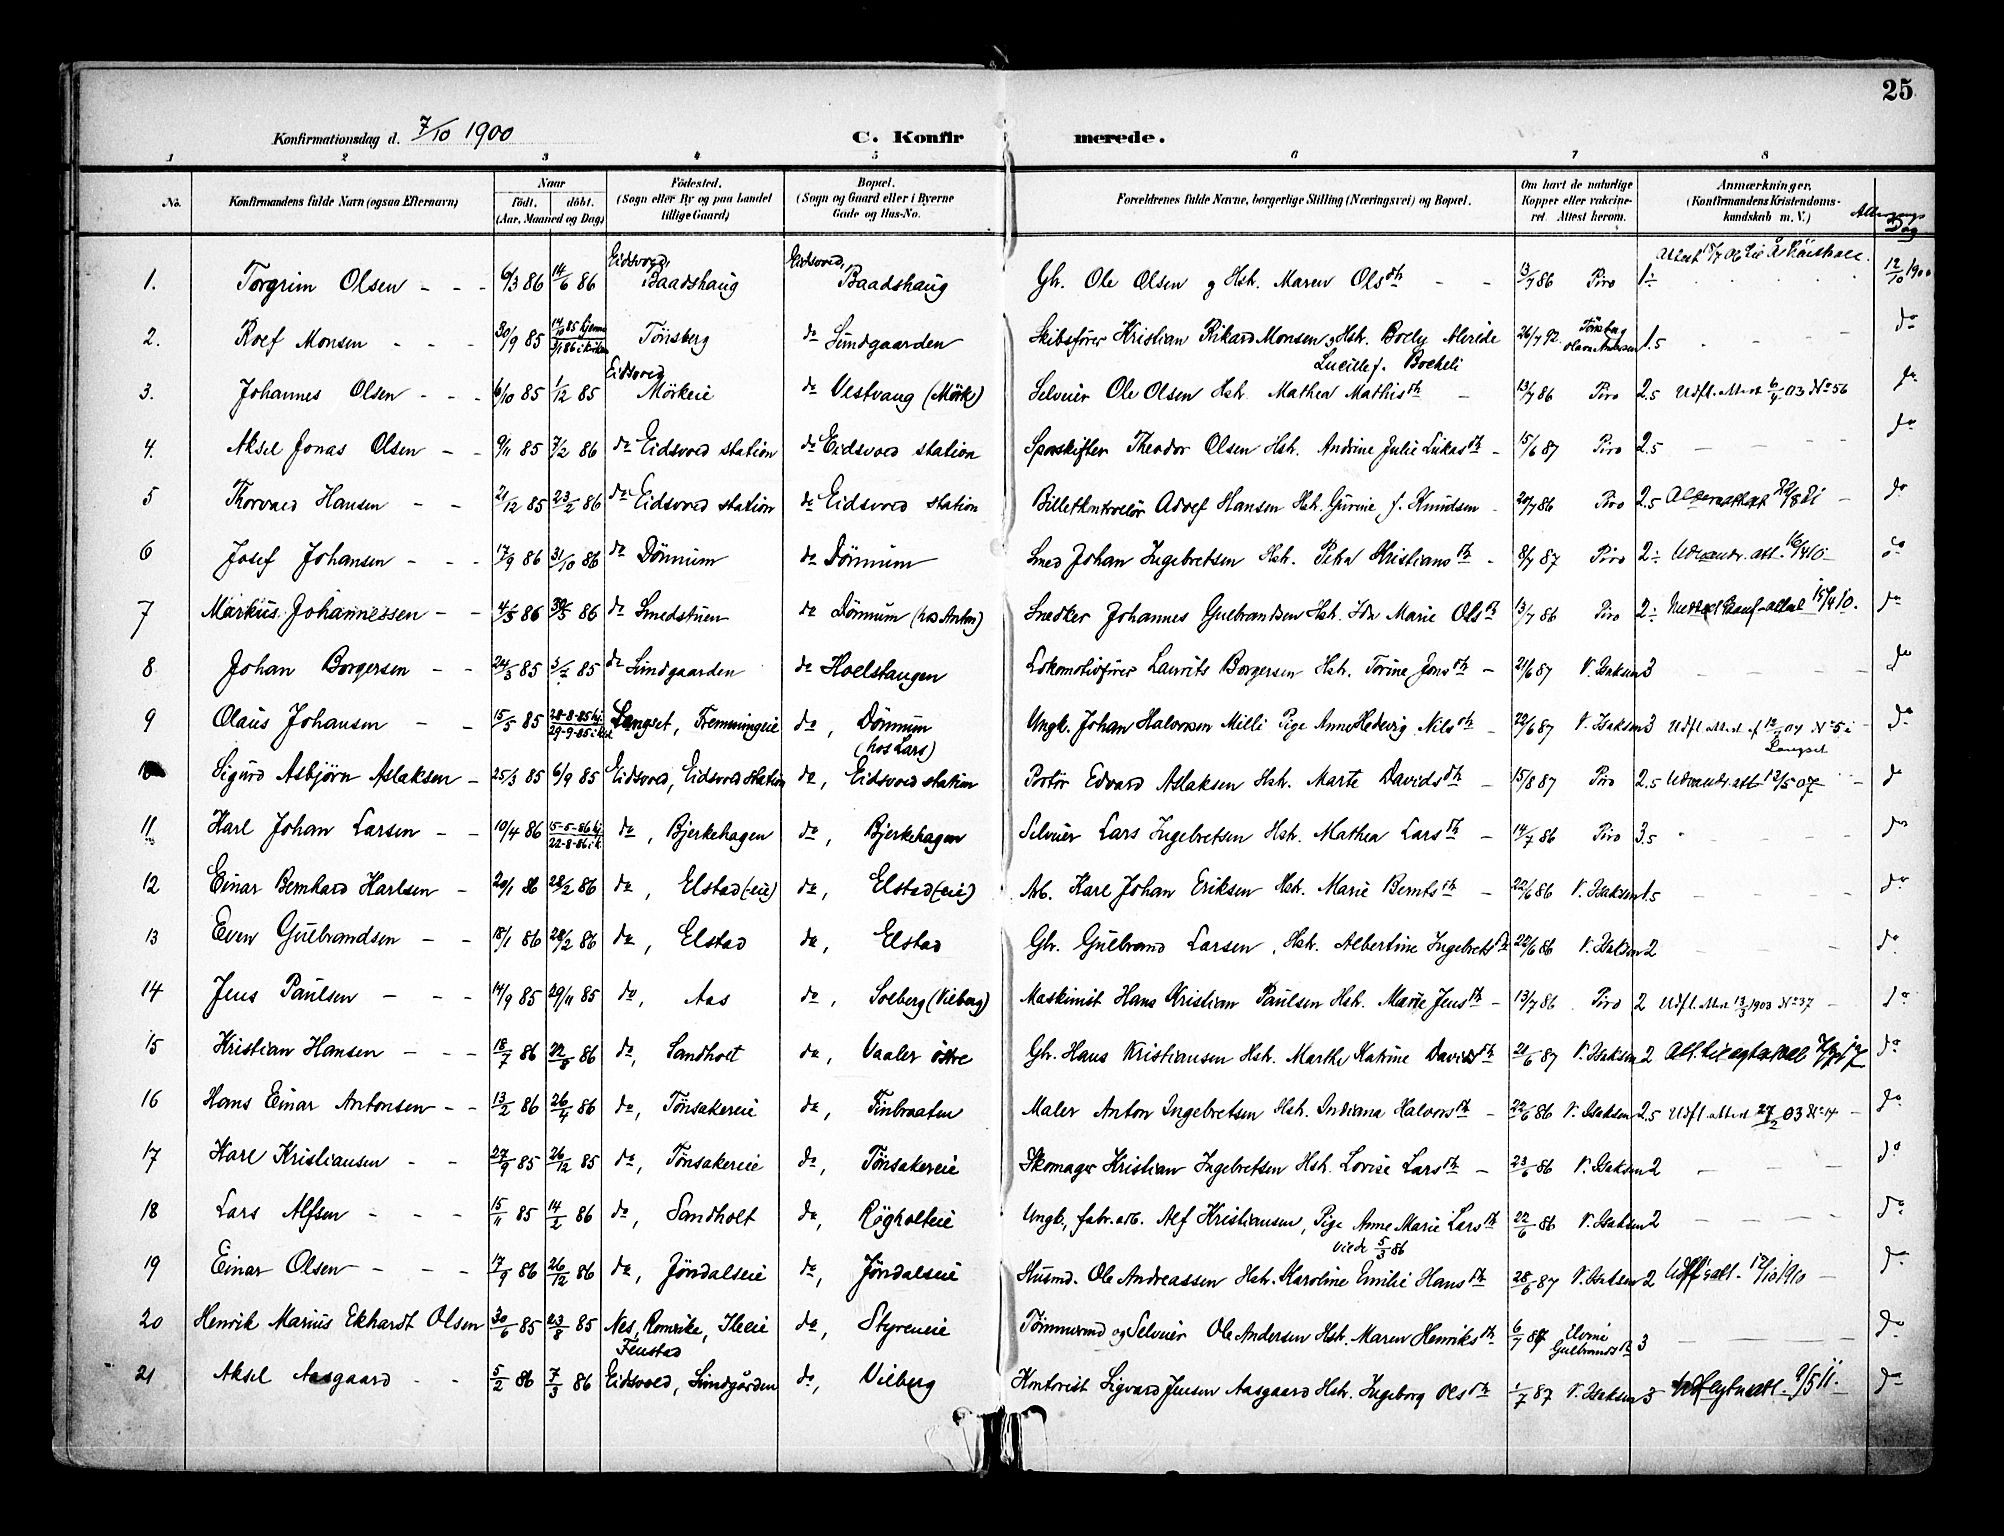 25
Konfirmationsdag d. 7/10 1900
C. Konfirmerede.
1 2 3 4 5 6 7 8
No. Konfirmandens fulde Navn (ogsaa Efternavn) Naar født. døbt. (Aar, Maaned og Dag) Fødested. (Sogn eller By og paa Landet tillige Gaard) Bopæl. (Sogn og Gaard eller i Byerne Gade og Hus-No.) Forældrenes fulde Navne, borgerlige Stilling (Næringsvei) og Bopæl. Om havt de naturlige Kopper eller vakcineret. Attest herom. Anmærkninger. (Konfirmandens Kristendomskundskab m. V.) Altergangs Dag
1. Torgrim Olsen - - - 6/3 86 14/6 86 Eidsvold, Baadshaug Eidsvold, Baadshaug Gbr. Ole Olsen og Hstr. Maren Olsdtr - - 13/7 86 Piro 1÷ 12/10 1900
2. Rolf Monsen - - - 30/9 85 14/10 85 hjemme 3/1 86 i kirken Tönsberg do Sundgaarden Skibsfører Kristian Rikard Monsen og Hstr. Boely Meride Lucille f. Bocheli 26/7 92 Tönsberg Olava Andersen 1.5 do
3. Johannes Olsen - - - 6/10 85 1/12 85 Eidsvold Mörkeie do Vestvang (Mörk) Selveier Ole Olsen Hstr. Mathea Mathisdtr - 13/7 86 Piro 2.5 Udfl. Attest 6/4 03 No 56 do
4. Aksel Jonas Olsen - - 9/11 85 7/2 86 do Eidsvold station do Eidsvold station Sporskifter Theodor Olsen Hstr. Andrine Julie Lukasdtr - 15/6 87 Piro 2.5 do
5 Thorvald Hansen - - 21/12 85 23/2 86 do Eidsvold station do Eidsvold station Billetkontrolør Adolf Hansen Hstr. Gurine f. Knudsen - 20/7 86 Piro 2.5 do
6 Josef Johansen - - - 17/9 86 31/10 86 do Dönnum do Dönnum Smed Johan Ingebretsen Hstr. Petra Kristiansdtr - 8/7 87 Piro 2÷ Udvandr. att. 16/4 10 do
7 Markus Johannessen - - 4/5 86 30/5 86 do Smedstuen do Dönnum (hos Anton) Snedker Johannes Gulbrandsen Hstr. Ida Marie Olsdtr 13/7 86 Piro 2÷ 15/4 10. do
8 Johan Borgersen - - 24/3 85 3/7 85 do Sundgaarden do Holstangen Lokomotivfører Laurits Borgersen Hstr. Torine Jonsdtr - 21/6 87 V. Isaksen 3 do
9 Olaus Johansen - - 15/5 85 28-8-85 hj. 29-9-85 i kir. Langset, Fremmingeie do, Dönnum (hos Lars) Ungk. Johan Halvorsen Milli Pige Anne Hedevig Nilsdtr - 22/6 87 V. Isaksen 3 Udfl. attest No 5 i Langset do
10 Sigurd Asbjörn Aslaksen - 25/3 85 6/9 85 Eidsvold, Eidsvold station do, Eidsvold station Portør Edvard Aslaksen Hstr. Marte Davidsdtr - 15/8 87 Piro 2.5 Udvandr. att. 13/5 07 do
11 Karl Johan Larsen - - 10/4 86 15-5-86 hj. 22-8-86 i k. do, Bjerkehagen do, Bjerkehagen Selveier Lars Ingebretsen Hstr. Mathea Larsdtr - 14/7 86 Piro 3.5 do
12 Einar Bernhard Karlsen - 20/1 86 28/2 86 do, Elstad (-eie) do, Elstad (eie) Arb. Karl Johan Eriksen Hstr. Marie Berntsdtr - 22/6 86 V. Isaksen 1.5 do
13 Even Gulbrandsen - - 18/1 86 28/2 86 do, Elstad do, Elstad Gbr. Gulbrand Larsen, Hstr. Albertine Ingebretsdtr 22/6 86 V. Isaksen 2 do
14 Jens Paulsen - - - 14/9 85 29/11 85 do, Aas do, Solberg (Vilberg) Maskinist Hans Kristian Paulsen Hstr. Marie Jensdtr - 13/7 86 Piro 2 Udfl. Attest 13/3 1903 No 37 do
15 Kristian Hansen - - - 18/7 86 22/8 86 do, Sandholt do, Vaaler östre Gbr. Hans Kristiansen Hstr. Marthe Katrine Davidsdtr 21/6 87 V. Isaksen 2 do
16 Hans Einar Antonsen - - 13/2 86 26/4 86 do, Tönsakereie do, Finbraaten Maler Anton Ingebretsen Hstr. Indiana Halvorsdtr - 22/6 86 V. Isaksen 2.5 Udfl. attest 27/2 03 No 14 do
17 Karl Kristiansen - - 27/9 85 26/12 85 do, Tönsakereie do, Tönsakereie Skomager Kristian Ingebretsen Hstr. Lovise Larsdtr - 23/6 86 V. Isaksen 2 do
18 Lars Alfsen - - - 15/11 85 14/2 86 do, Sandholt do, Røgholteie Ungk., fabr. arb. Alf Kristiansen, Pige Anne Marie Larsdtr viede 5/3 86 22/6 86 V. Isaksen 2 do
19 Einar Olsen - - - 17/9 86 26/12 86 do, Jöndalseie do, Jöndalseie Husmd. Ole Andreassen Hstr. Karoline Emilie Hansdtr 28/6 87 V. Isaksen 2 12/10 1910 do
20 Henrik Marius Ekhardt Olsen 30/6 85 23/8 85 Nes, Romrike, Ileie Fenstad do, Styreneie Tømmermd og Selveier Ole Andersen Hstr. Maren Henriksdtr 6/7 87 Elvine Gulbrandsdtr 3 do
21 Aksel Aasgaard - - 5/2 86 7/3 86 Eidsvold, Sundgården do, Vilberg Kontorist Sigvard Jensen Aasgaard Hstr. Ingeborg Olsdtr 1/7 87 V. Isaksen 3 9/5 11. do